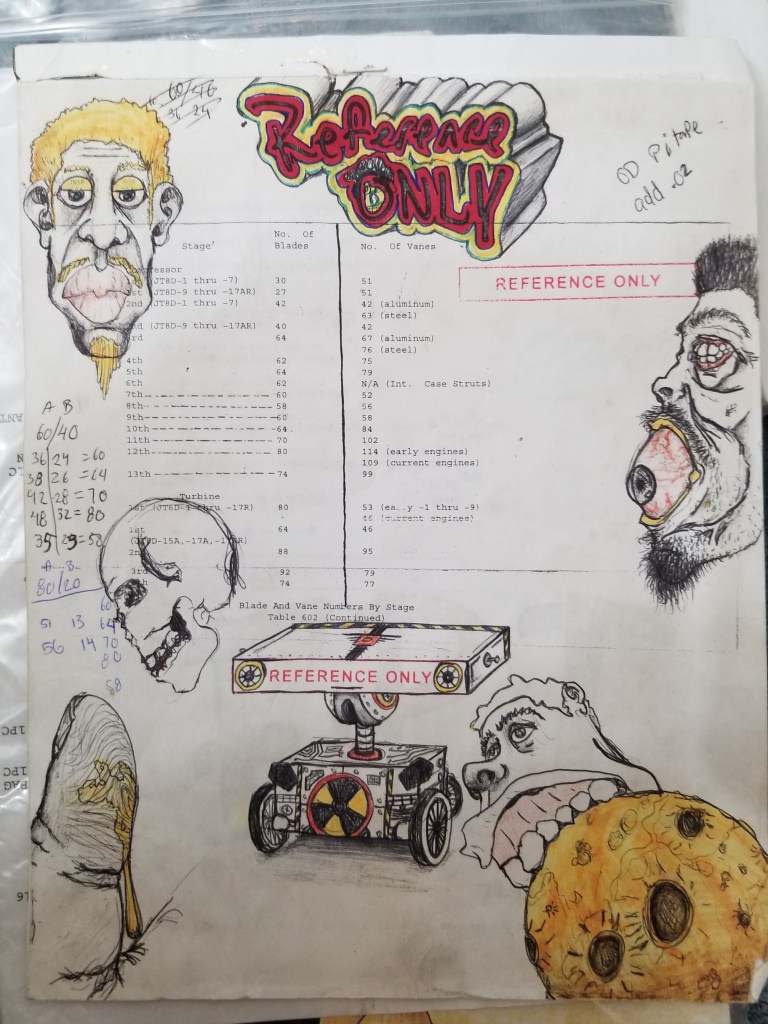 Reference
ONLY
OD Pi tape
add .02
Stage
No. Of
Blades
No. Of Vanes
REFERENCE ONLY
(JT8D-1 thru -7) 30 51
(JT8D-9 thru -17AR) 27 51
2nd (JT8D-1 thru -7) 42 42 (aluminum)
63 (steel)
(JT8D-9 thru -17AR) 40 42
64 67 (aluminum)
76 (steel)
4th 62 75
5th 64 79
6th 62 N/A (Int. Case Struts)
7th 60 52
8th 58 56
9th 60 58
10th 64 84
11th 70 102
12th 80 114 (early engines)
109 (current engines)
13th 74 99
Turbine
1st (JT8D-1 thru -17R) 80 53 (early -1 thru -9)
(current engines)
1st 64 46
88 95
92 79
74 77
Blade And Vane Numbers By Stage
Table 602 (Continued)
A B
60/40
36 24 =60
38 26 =64
42 28 =70
48 32 =80
35 23 =58
A B
80/20
60
51 13 64
56 14 70
80
58
REFERENCE ONLY